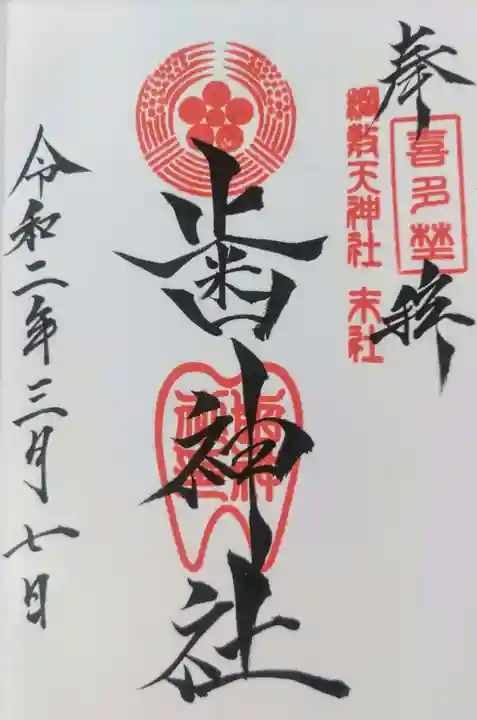 奉拝
喜多埜
綱敷天神社 末社
歯神社
令和二年三月七日